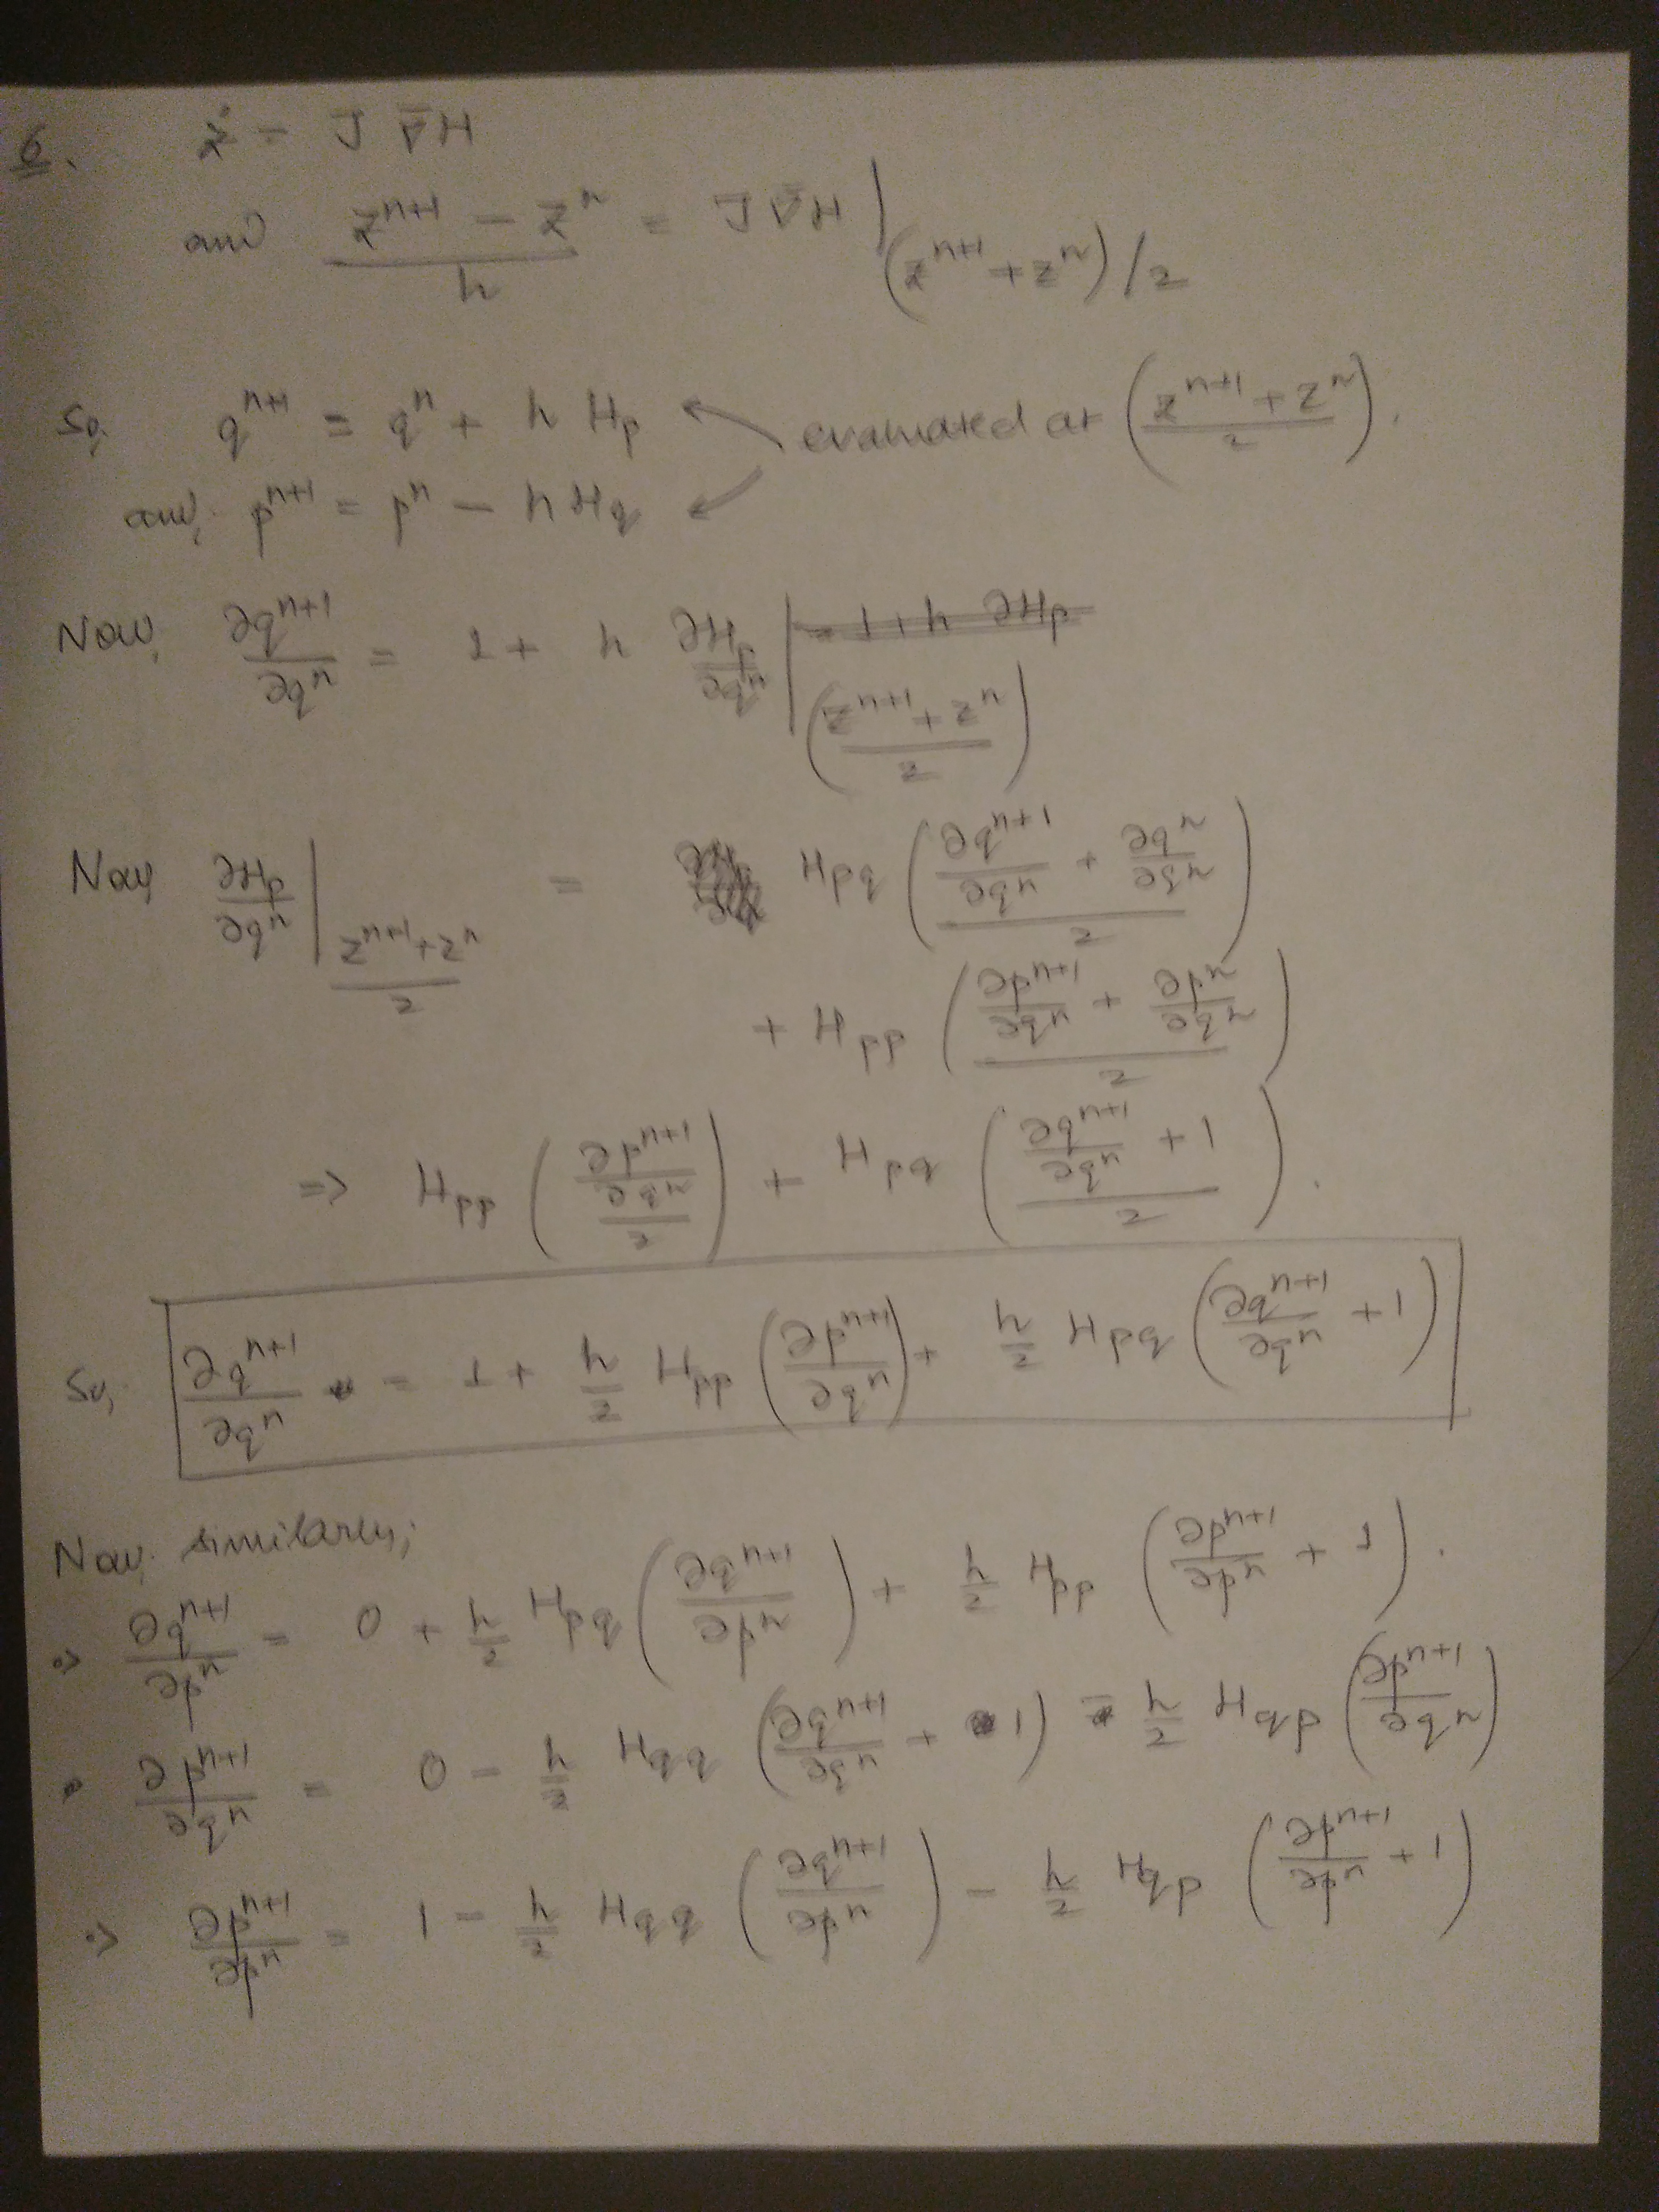 6. ż = J ∇̄H
and (z^{n+1} − z^n)/h = J ∇̄H |_{(z^{n+1} + z^n)/2}
So, q^{n+1} = q^n + h H_p ← evaluated at ((z^{n+1} + z^n)/2).
and, p^{n+1} = p^n − h H_q ←
Now, ∂q^{n+1}/∂q^n = 1 + h ∂H_p/∂q^n |_{((z^{n+1} + z^n)/2)} = 1 + h ∂H_p
Now ∂H_p/∂q^n |_{(z^{n+1} + z^n)/2} = H_{pq} ((∂q^{n+1}/∂q^n + ∂q^n/∂q^n)/2)
+ H_{pp} ((∂p^{n+1}/∂q^n + ∂p^n/∂q^n)/2)
=> H_{pp} ((∂p^{n+1}/∂q^n)/2) + H_{pq} ((∂q^{n+1}/∂q^n + 1)/2).
So, ∂q^{n+1}/∂q^n = 1 + h/2 H_{pp} (∂p^{n+1}/∂q^n) + h/2 H_{pq} (∂q^{n+1}/∂q^n + 1)
Now, similarly;
∂q^{n+1}/∂p^n = 0 + h/2 H_{pq} (∂q^{n+1}/∂p^n) + h/2 H_{pp} (∂p^{n+1}/∂p^n + 1).
∂p^{n+1}/∂q^n = 0 − h/2 H_{qq} (∂q^{n+1}/∂q^n + 1) − h/2 H_{qp} (∂p^{n+1}/∂q^n)
∂p^{n+1}/∂p^n = 1 − h/2 H_{qq} (∂q^{n+1}/∂p^n) − h/2 H_{qp} (∂p^{n+1}/∂p^n + 1)